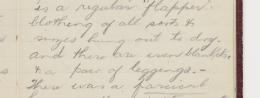 is a regular "flapper".
Clothing of all sorts &
sizes hung out to dry.
and there are even blankets
& a pair of leggings. -
There was a